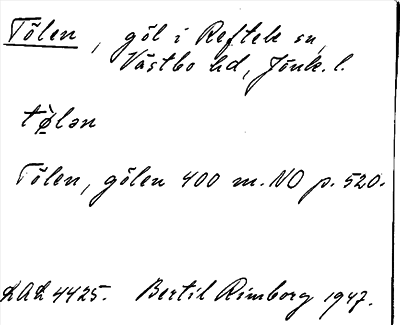 Tölen, göl i Reftele sn,
Västbo hd, Jönk. l.
tø̀lən
Tölen, gölen 400 m. NO p. 520.
LAL 4425. Bertil Rimborg 1947.